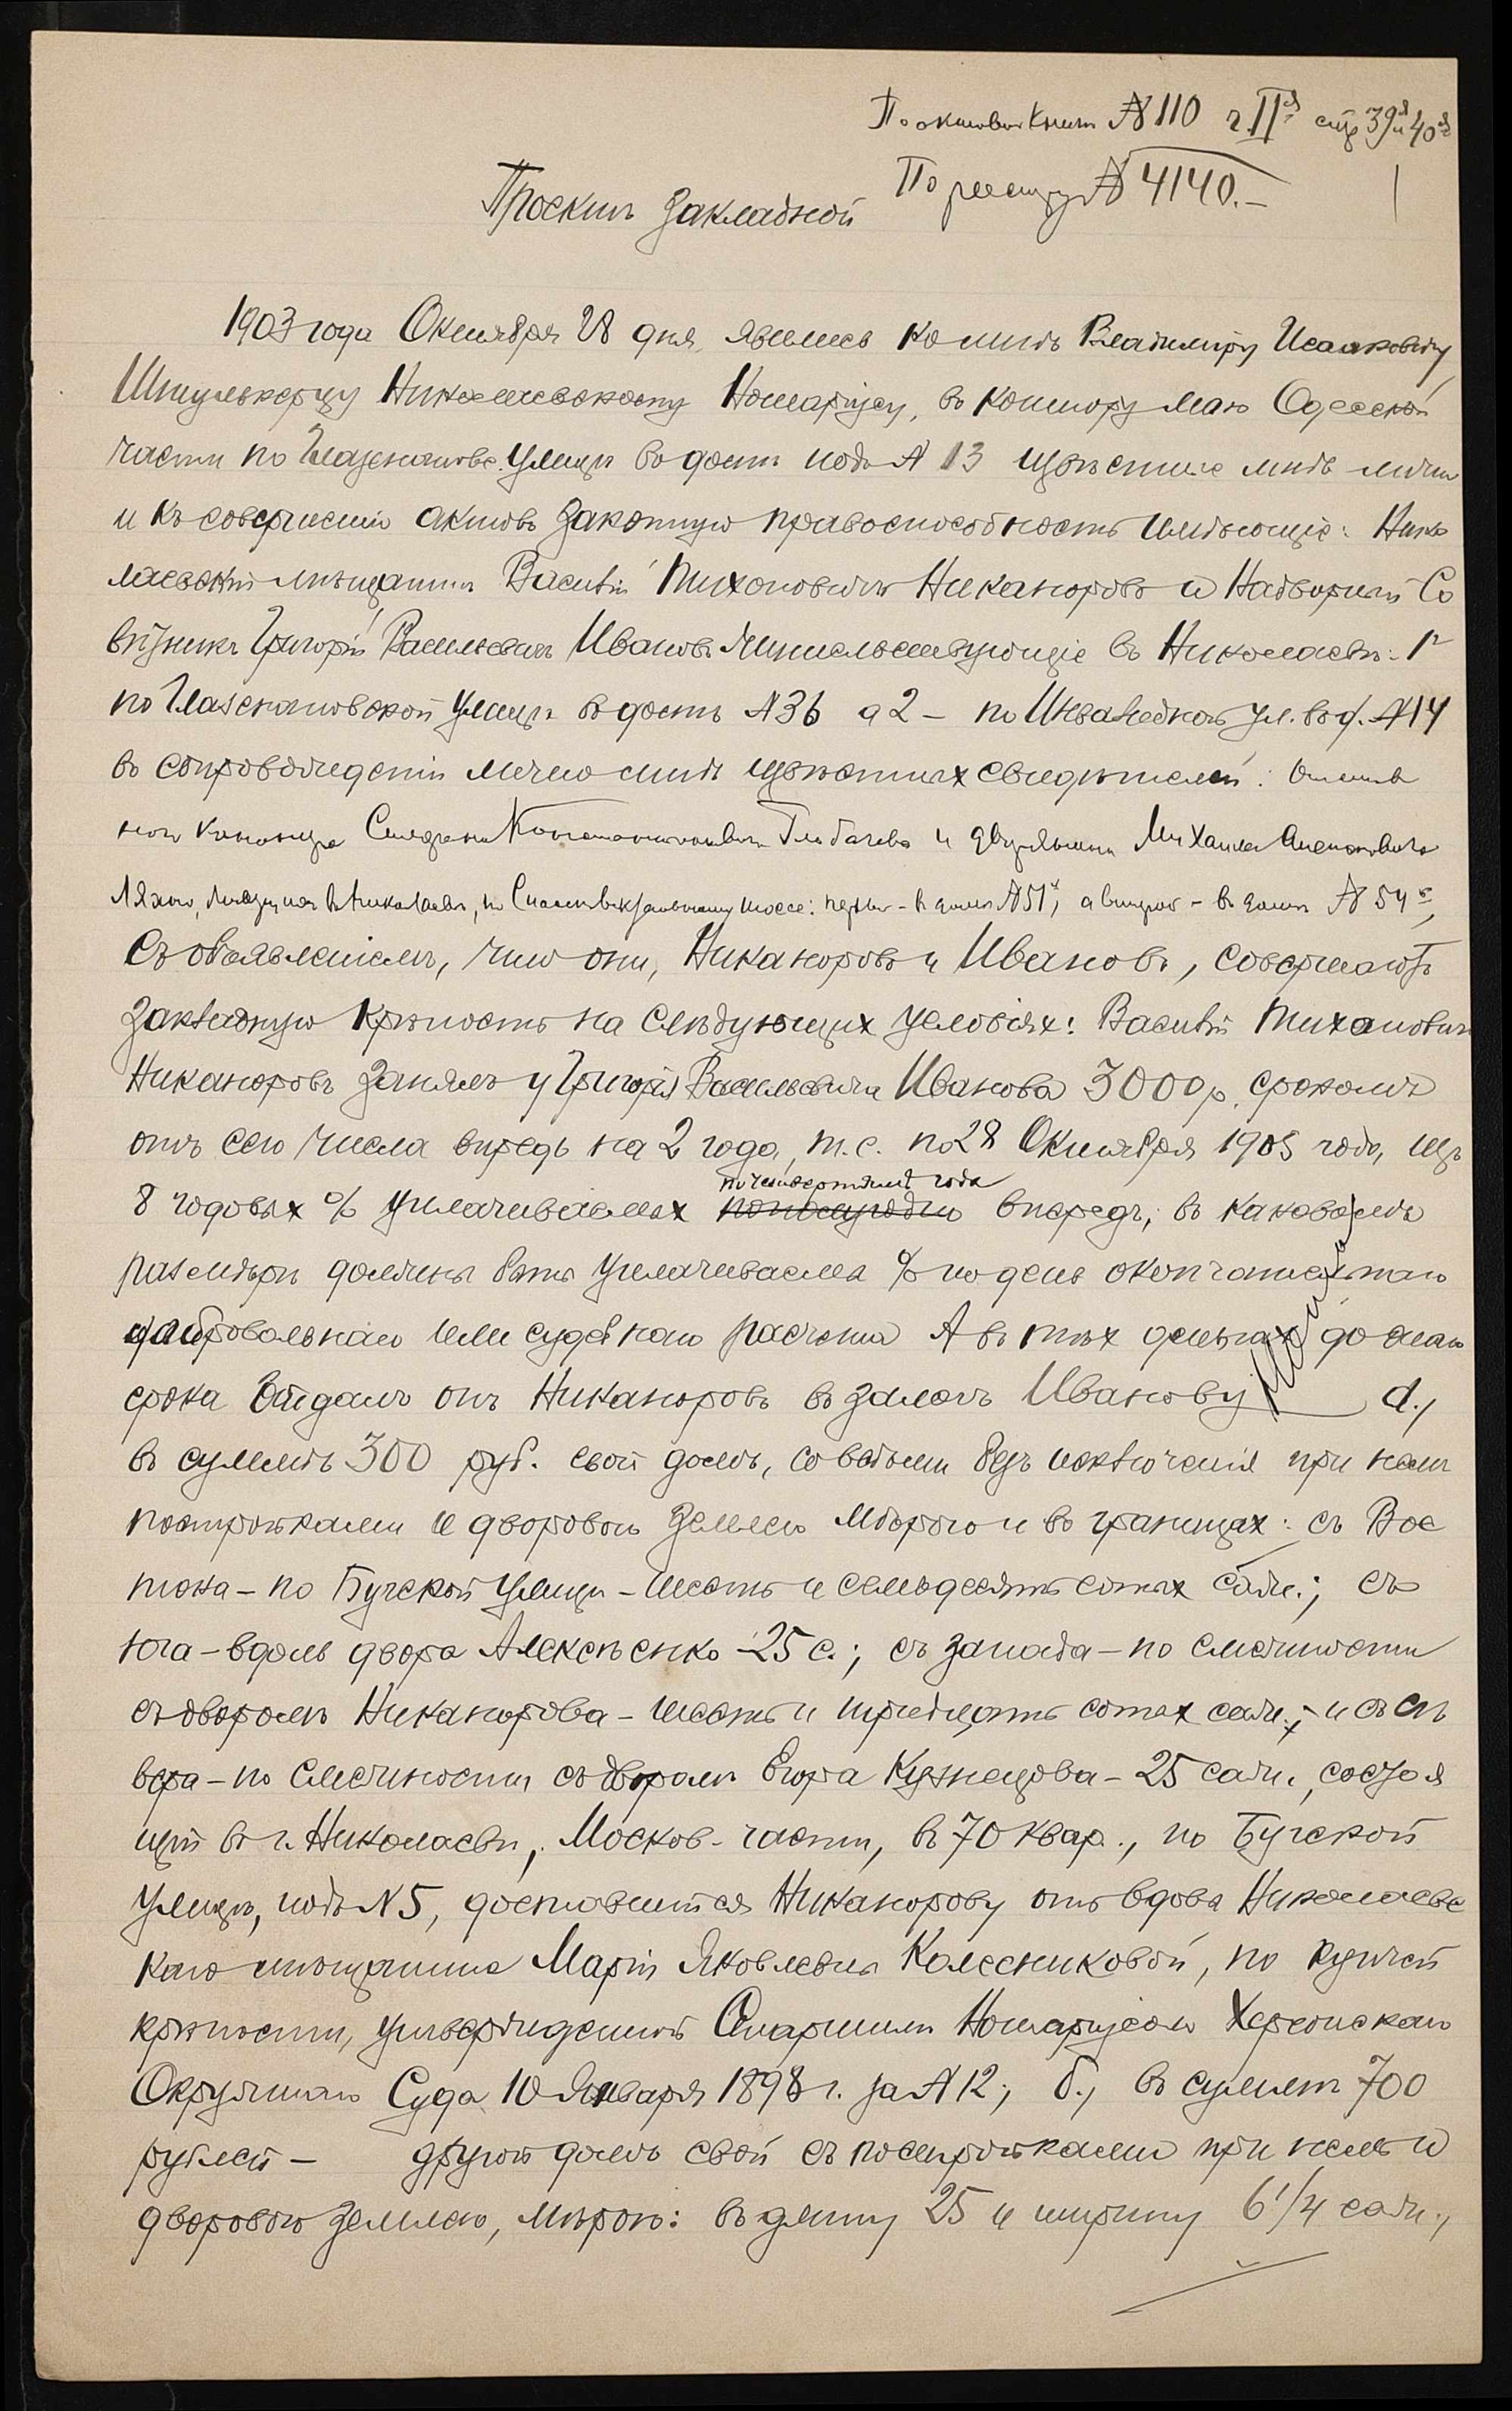 По актовой книгѣ № 110 ч. IIя стр 39я и 40я
По реестру № 4140.–
Проектъ закладной
1903 года Октября 28 дня, явились ко мнѣ Владиміру Исааковичу
Николаевскому Нотаріусу, въ контору мою Одесской
части по Глазенаповс. улицѣ въ домѣ подъ № 13 извѣстные мнѣ лично
и къ совершенію актовъ законную правоспособность имѣющіе: Нико
лаевскій мѣщанинъ Василій Тихоновичъ Никаноровъ и Надворный Со
вѣтникъ Григорій Васильевичъ Ивановъ жительствующіе въ Николаевѣ: 1й
по Глазенаповской улицѣ въ домѣ № 36 а 2 – по Инвалидной ул. въ д. № 14
въ сопровожденіи лично мнѣ извѣстныхъ свидѣтелей:
Константиновича и дворянина Михаила Антоновича
въ Николаевѣ, по шоссе: первый – въ домѣ № 51й, а второй – въ домѣ № 54й,
Съ объявленіемъ, что они, Никаноровъ и Ивановъ, совершаютъ
закладную крѣпость на слѣдующихъ условіяхъ: Василій Тихоновичъ
Никаноровъ занялъ у Григорія Васильевича Иванова 3000 р. срокомъ
отъ сего числа впредь на 2 года, т.е. по 28 Октября 1905 года, изъ
8 годовыхъ % уплачиваемыхъ по четвертямъ года впередъ, въ каковомъ
размѣрѣ должны быть уплачиваемы % по день окончательнаго
добровольнаго или судебнаго расчета А въ тѣхъ деньгахъ до онаго
срока отдалъ онъ Никаноровъ въ залогъ Иванову а.,
въ суммѣ 300 руб. свой домъ, со всѣми безъ исключенія при немъ
постройками и дворовою землею мѣрою и въ границахъ: съ Вос
тока – по Бугской улицѣ – шесть и семьдесятъ сотыхъ саж.; съ
юга – вдоль двора Алексѣенко – 25 с.; съ запада – по смежности
съ дворомъ Никанорова – шесть и тридцать сотыхъ саж.; и съ сѣ
вера – по смежности съ дворомъ Егора Кузнецова – 25 саж., состоя
щій въ г. Николаевѣ, Москов. части, въ 70 квар., по Бугской
улицѣ, подъ № 5, доставшійся Никанорову отъ вдовы Николаевс
каго мѣщанина Маріи Яковлевны Колесниковой, по купчей
крѣпости, утвержденной Старшимъ Нотаріусомъ Херсонскаго
Окружнаго Суда 10 Января 1898 г. за № 12; б., въ суммѣ 700
рублей – другой домъ свой съ постройками при немъ и
дворовою землею, мѣрою: въ длину 25 и ширину 6 1/4 саж.,